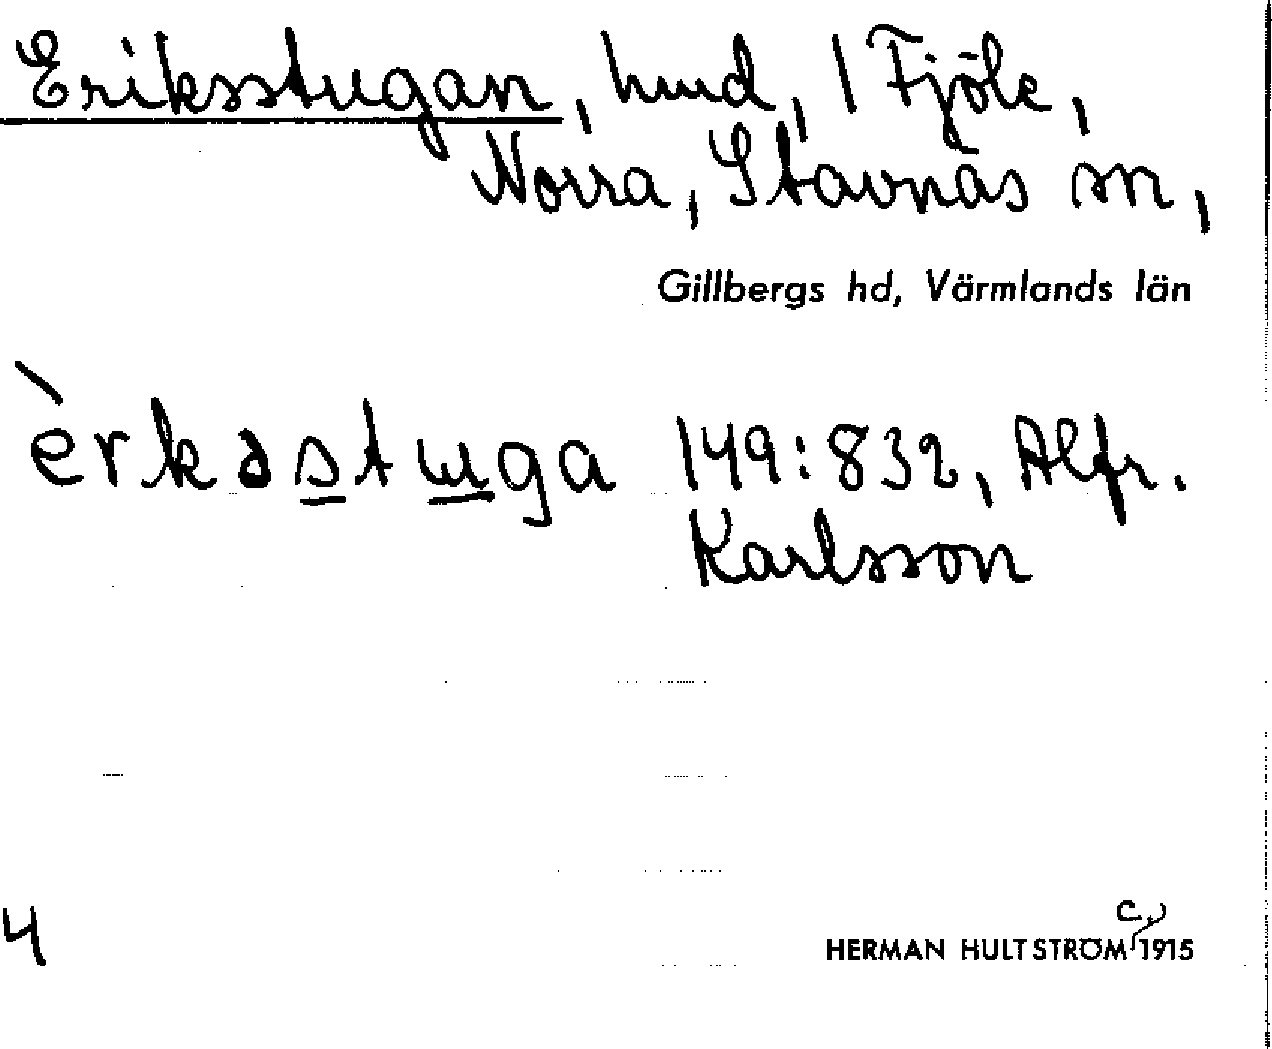 Eriksstugan, hmd, 1 Fjöle,
Norra, Stavnäs sn,
Gillbergs hd, Värmlands län
`èrkəstɯga 149:832, Alfr.
Karlsson
4
c.
HERMAN HULTSTRÖM 1915